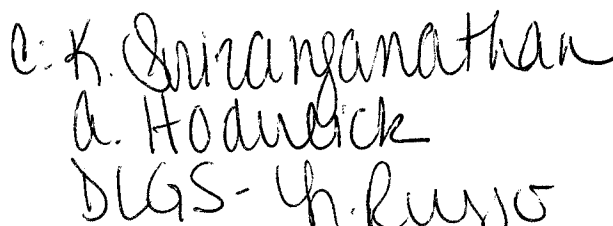 c: K. Sriranganathan
a. Hodwick
DLGS- M. Russo